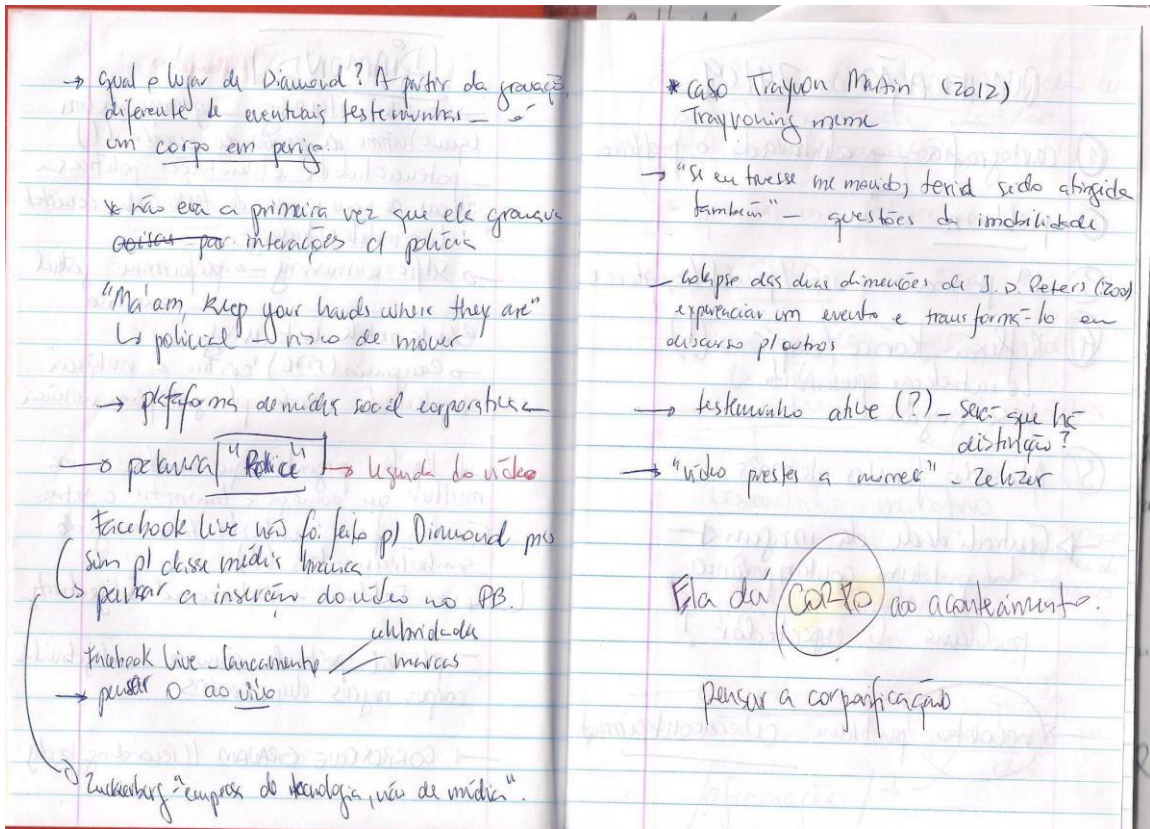 → qual o lugar de Diamond? A partir da gravação,
diferente de eventuais testemunhas — é
um corpo em perigo
* não era a primeira vez que ela gravava
coisas por interações c/ polícia
"Ma'am, keep your hands where they are"
↳ policial → risco de mover
→ plataforma de mídia social corporativa
→ palavra "Police" → legenda do vídeo
Facebook Live não foi feito p/ Diamond mas
sim p/ classe média branca
↳ pensar a inserção do vídeo no FB.
celebridades
Facebook Live lançamento marcas
→ pensar o ao vivo
→ Zuckerberg "empresa de tecnologia, não de mídia".
* caso Trayvon Martin (2012)
Trayvoning meme
→ "Se eu tivesse me movido, teria sido atingida
também" — questões da imobilidade
— colapso das duas dimensões de J. D. Peters (2001)
experenciar um evento e transformá-lo em
discurso p/ outros
→ testemunho ativo (?) — será que há
distinção?
→ "vídeo prestes a morrer" — Zelizer
Ela dá corpo ao acontecimento.
pensar a corporificação